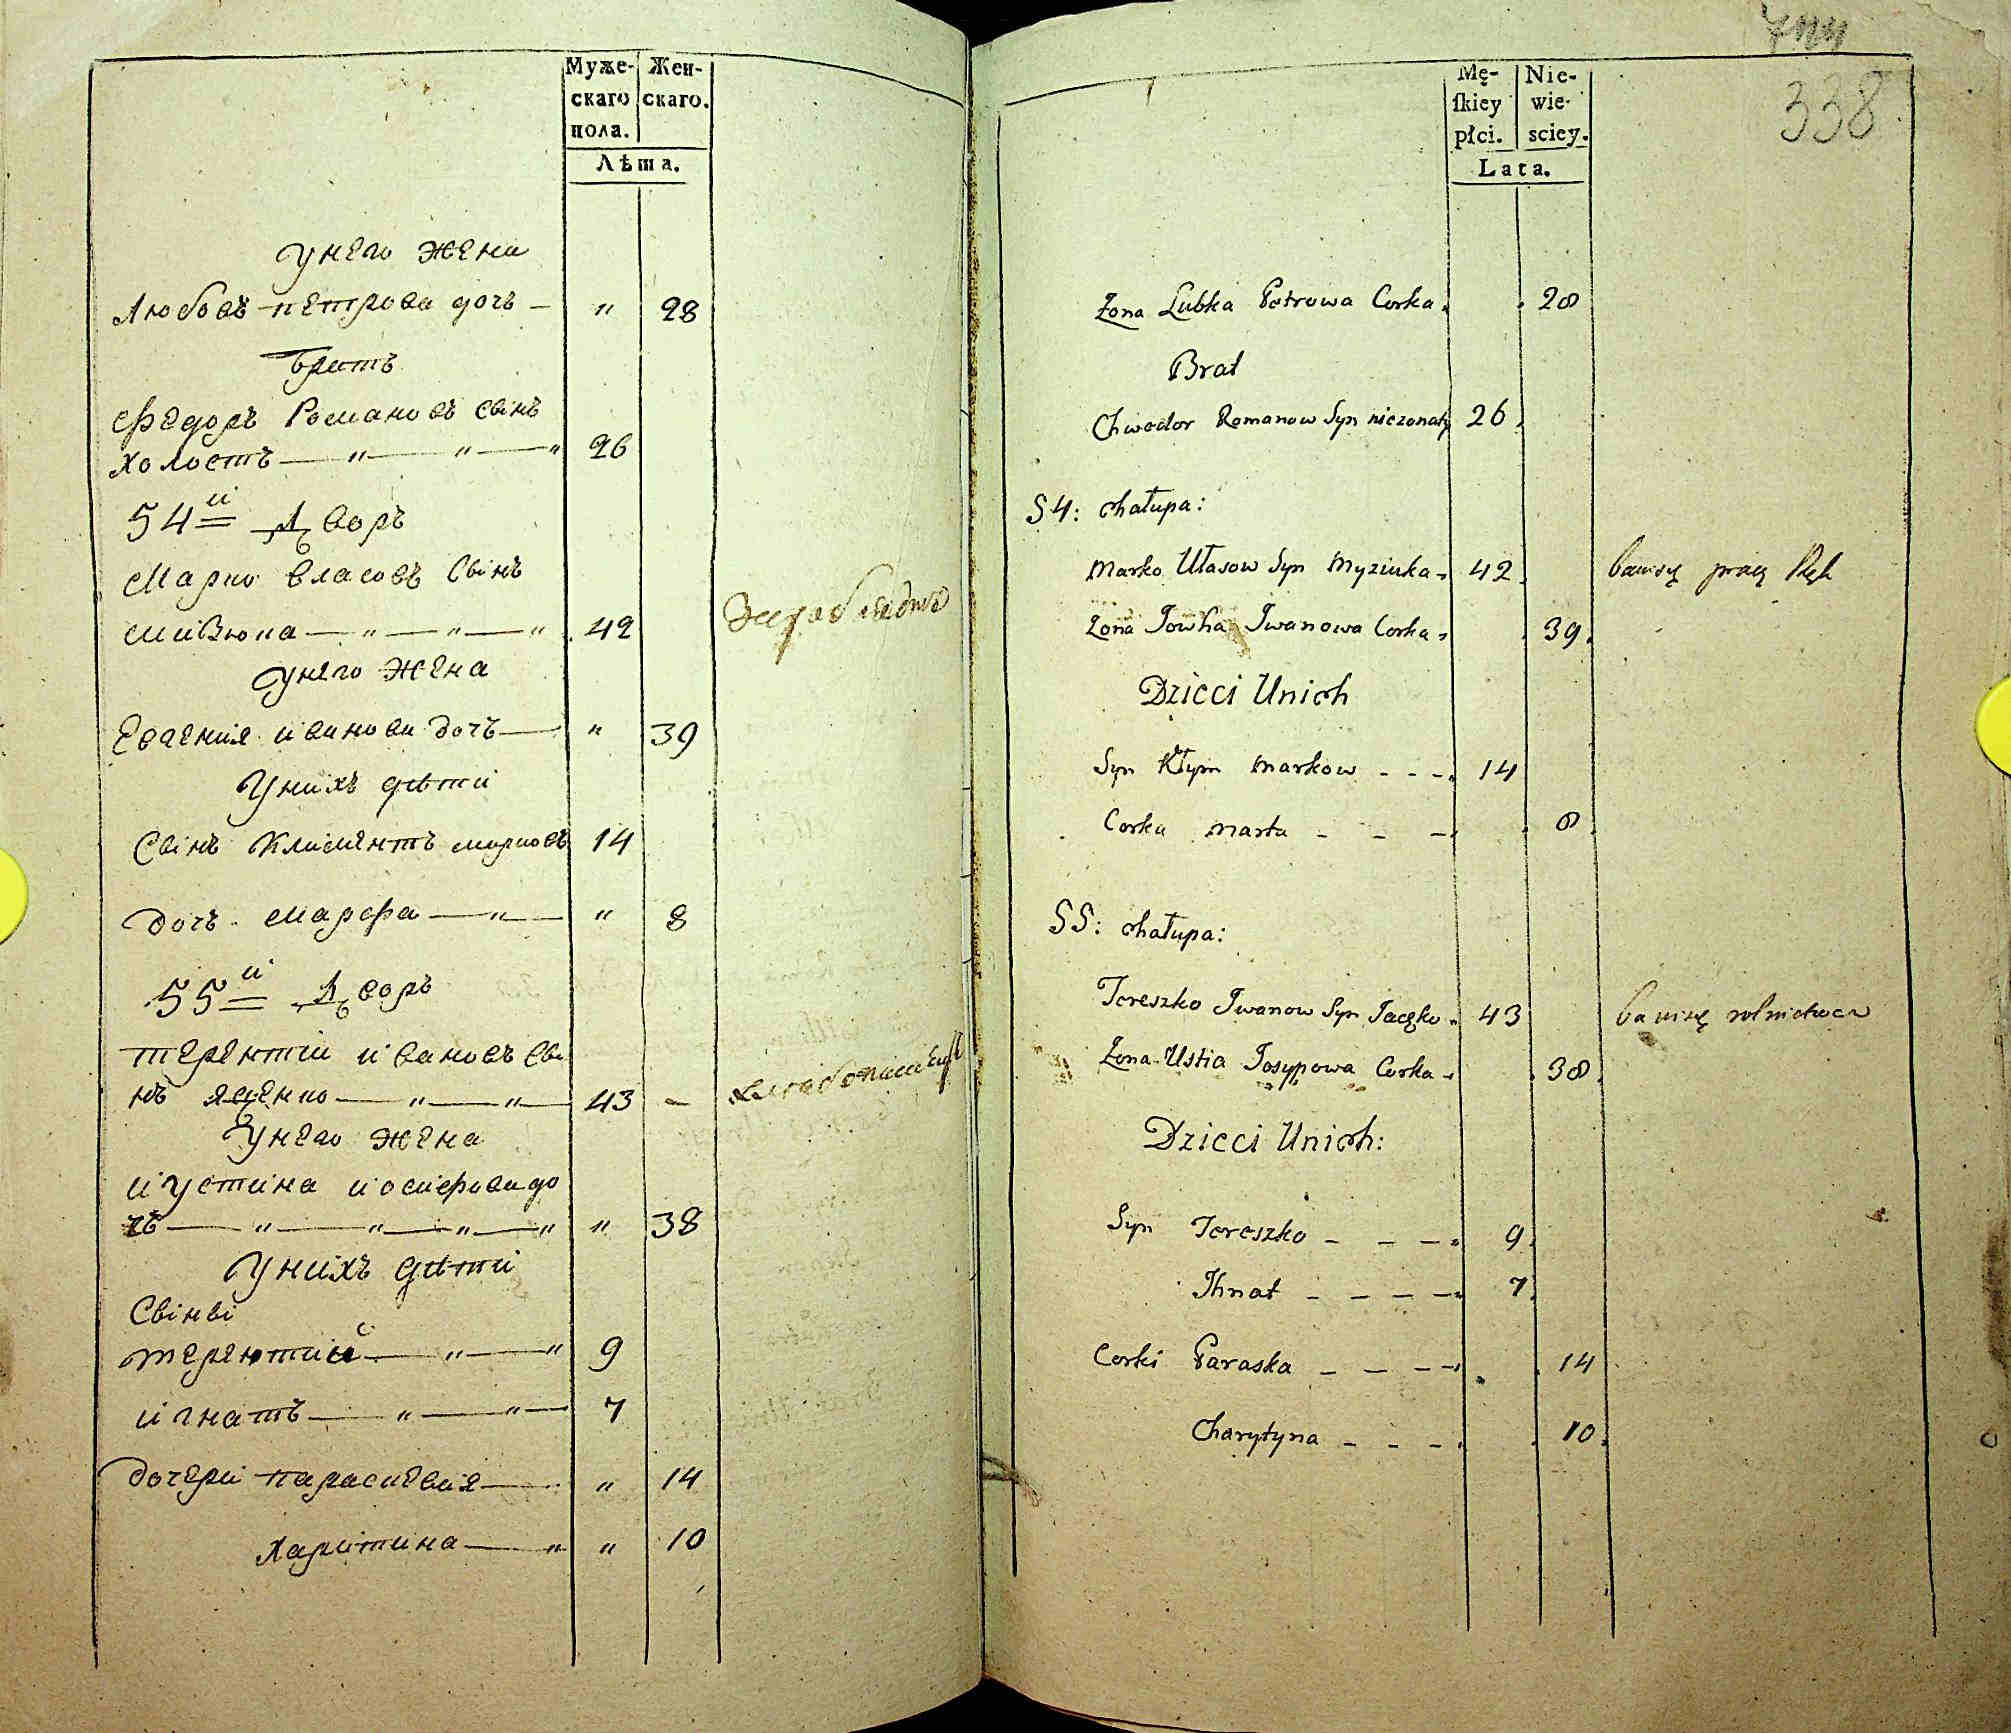 Муже-
скаго
пола.
Жен-
скаго.
Лѣта.
у него жена
Любовъ петрова дочъ — " 28
братъ
Федоръ Романовъ сынъ
холостъ — " — " — " 26
54й Дворъ
Марко власовъ сынъ
мизюка — " — " — " 42
у него жена
Евгения иванова дочъ — " 39
у нихъ дѣти
сынъ климентъ марковъ 14
дочъ марфа — " — " 8
55й Дворъ
терентии ивановъ сы
нъ яценко — " — " — 43 —
у него жена
иустина иосифова до
чъ — " — " — " — " " 38
у нихъ дѣти
сынъі
терентий — " — " 9
игнатъ — " — " — 7
дочери параскевия — " 14
харитина — " " 10
744
338
Mę-
ſkiey
płci.
Nie-
wie-
sciey.
Lata.
Zona Lubka Petrowa Corka 28
Brat
Chwedor Romanow Syn niezonaty 26
54: chałupa:
Marko Ułasow Syn Myziuka 42 bawisię pracą Rąk
Zona Jowha Iwanowa Corka 39
Dzieci Unich
Syn Kłym Markow - - - 14
Corka Marta - - - 8
55: chałupa:
Tereszko Iwanow Syn Jacęko 43 bawisię rolnictwem
Zona Ustia Josypowa Corka 38
Dzieci Unich:
Syn Tereszko - - - - 9
Ihnat - - - - 7
Corki Paraska - - - - 14
Charytyna - - - 10